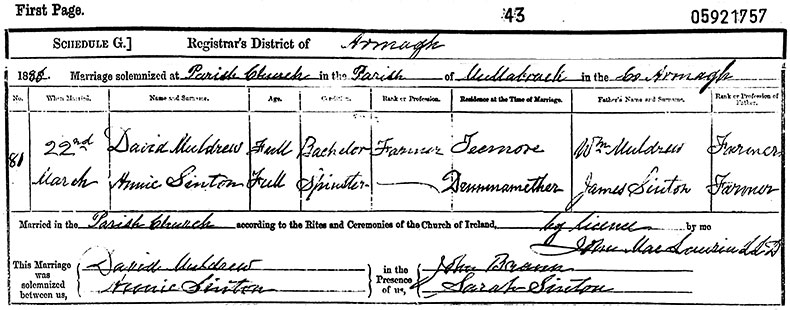 First Page. 43 05921757
SCHEDULE G.] Registrar's District of Armagh
188 . Marriage solemnized at Parish Church in the Parish of Mullabrack in the Co Armagh
No. When Married. Name and Surname. Age. Condition. Rank or Profession. Residence at the Time of Marriage. Father's Name and Surname. Rank or Profession of Father.
81 22nd David Muldrew Full Bachelor Farmer Teemore Wm Muldrew Farmer
March Annie Sinton Full Spinster Drumnamether James Sinton Farmer
Married in the Parish Church according to the Rites and Ceremonies of the Church of Ireland, by licence by me
John Mac LL.D
This Marriage was solemnized between us, David Muldrew in the Presence of us, John
Annie Sinton Sarah Sinton